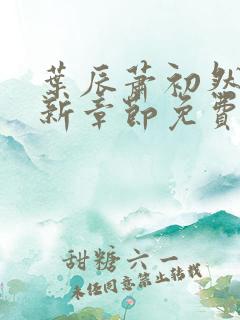 葉辰蕭初然
新章節免費
甜糖六一
未经同意禁止转载